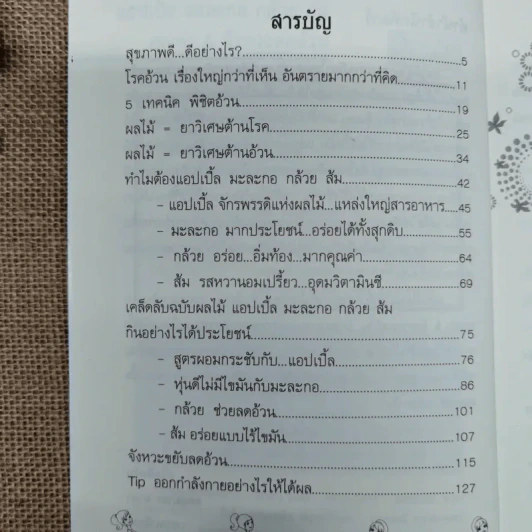 สารบัญ
สุขภาพดี...ดีอย่างไร?..........5
โรคอ้วน เรื่องใหญ่กว่าที่เห็น อันตรายมากกว่าที่คิด..........11
5 เทคนิค พิชิตอ้วน..........19
ผลไม้ = ยาวิเศษต้านโรค..........25
ผลไม้ = ยาวิเศษต้านอ้วน..........34
ทำไมต้องแอปเปิ้ล มะละกอ กล้วย ส้ม..........42
- แอปเปิ้ล จักรพรรดิแห่งผลไม้...แหล่งใหญ่สารอาหาร....45
- มะละกอ มากประโยชน์...อร่อยได้ทั้งสุกดิบ..........55
- กล้วย อร่อย...อิ่มท้อง...มากคุณค่า..........64
- ส้ม รสหวานอมเปรี้ยว...อุดมวิตามินซี..........69
เคล็ดลับฉบับผลไม้ แอปเปิ้ล มะละกอ กล้วย ส้ม
กินอย่างไรได้ประโยชน์..........75
- สูตรผอมกระชับกับ...แอปเปิ้ล..........76
- หุ่นดีไม่มีไขมันกับมะละกอ..........86
- กล้วย ช่วยลดอ้วน..........101
- ส้ม อร่อยแบบไร้ไขมัน..........107
จังหวะขยับลดอ้วน..........115
Tip ออกกำลังกายอย่างไรให้ได้ผล..........127